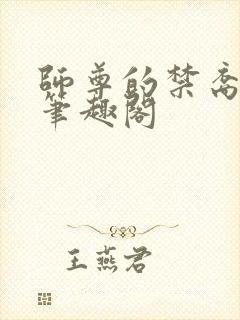 師尊的禁脔
筆趣閣
王燕君